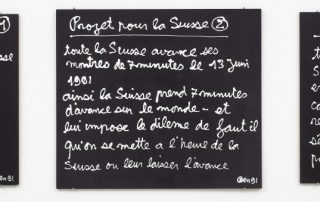 1
sse
Projet pour la Suisse 2
toute la Suisse avance ses
montres de 7 minutes le 13 Juin
1991
ainsi la Suisse prend 7 minutes
d'avance sur le monde - et
lui impose le dileme de faut il
qu'on se mette a l'heure de la
Suisse ou leur laisser l'avance
Ben 91
en 91